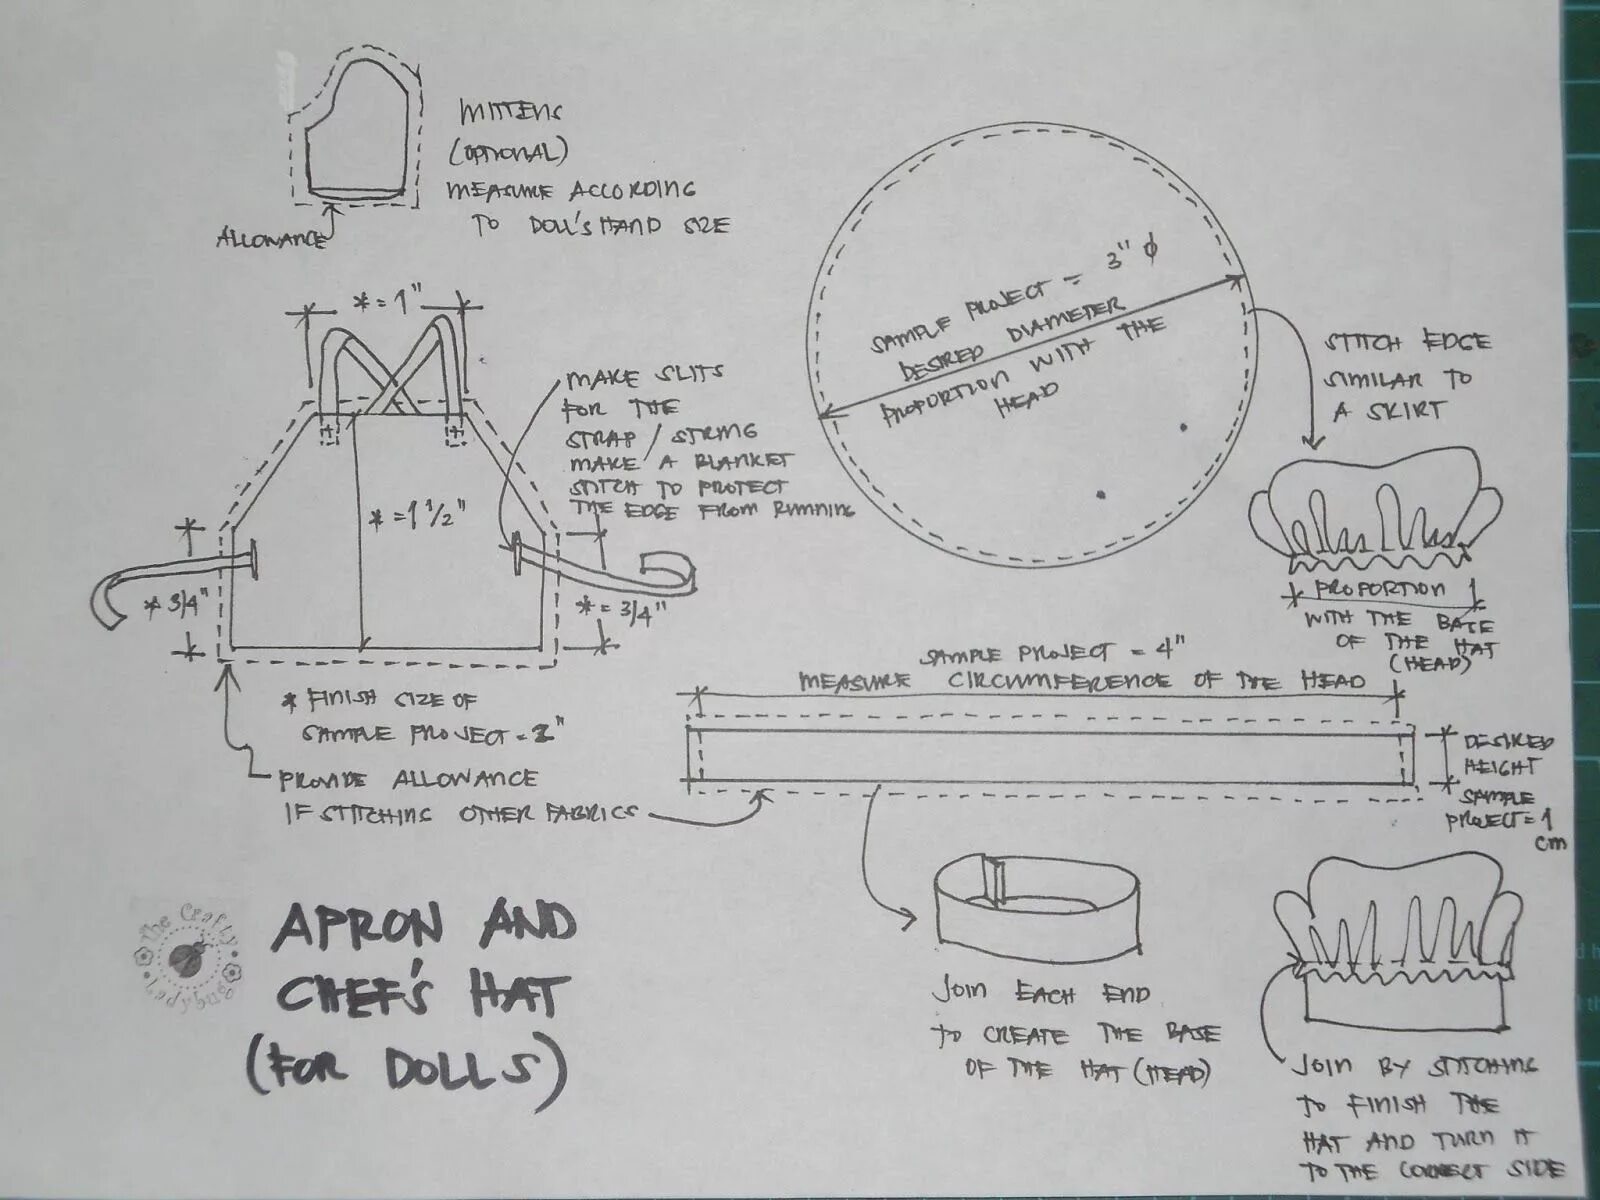 MITTENS
(OPTIONAL)
MEASURE ACCORDING
TO DOLL'S HAND SIZE
ALLOWANCE
* = 1"
MAKE SLITS
FOR THE
STRAP / STRING
MAKE A BLANKET
STITCH TO PROTECT
THE EDGE FROM RUNNING
* = 1 1/2"
* 3/4"
* = 3/4"
* FINISH SIZE OF
SAMPLE PROJECT = 2"
PROVIDE ALLOWANCE
IF STITCHING OTHER FABRICS
SAMPLE PROJECT = 3" ϕ
DESIRED DIAMETER
PROPORTION WITH THE
HEAD
STITCH EDGE
SIMILAR TO
A SKIRT
PROPORTION
WITH THE BASE
OF THE HAT
(HEAD)
SAMPLE PROJECT = 4"
MEASURE CIRCUMFERENCE OF THE HEAD
DESIRED
HEIGHT
SAMPLE
PROJECT = 1
cm
JOIN EACH END
TO CREATE THE BASE
OF THE HAT (HEAD)
JOIN BY STITCHING
TO FINISH THE
HAT AND TURN IT
TO THE CORRECT SIDE
The Crafty
Ladybug
APRON AND
CHEF'S HAT
(FOR DOLLS)